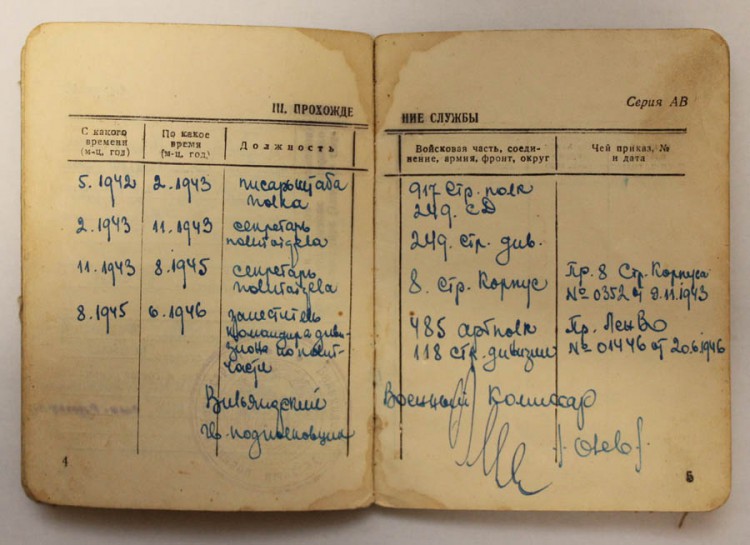 Серия АВ
III. ПРОХОЖДЕ
НИЕ СЛУЖБЫ
С какого времени (м-ц, год)
По какое время (м-ц, год)
Должность
Войсковая часть, соеди-
нение, армия, фронт, округ
Чей приказ, №
и дата
5.1942 2.1943 писарь штаба
полка
917 стр. полк
249. СД
2.1943 11.1943 секретарь
политотдела
249. стр. див.
11.1943 8.1945 секретарь
политотдела
8. стр. Корпус
Пр. 8 Стр. Корпуса
№ 0352 от 9.11.1943
8.1945 6.1946 заместитель
командира диви-
зиона по полит-
части
485 артполк
118 стр. дивизии
Пр. ЛенВО
№ 01446 от 20.6.1946
Вильяндский Военный Комиссар
гв. подполковник
4
5